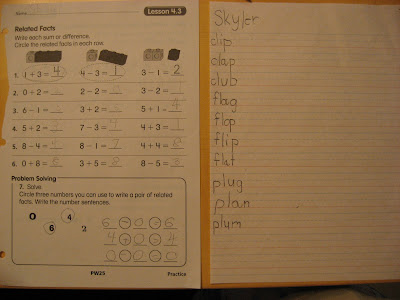 Name
Lesson 4.3
Related Facts
Write each sum or difference.
Circle the related facts in each row.
1. 1 + 3 = 4 4 - 3 = 1 3 - 1 = 2
2. 0 + 2 = 2 - 2 = 3 - 2 =
3. 6 - 1 = 3 + 2 = 5 + 1 =
4. 5 + 2 = 7 - 3 = 4 + 3 =
5. 8 - 4 = 8 - 1 = 4 + 4 = 8
6. 0 + 8 = 3 + 5 = 8 8 - 5 =
Problem Solving
7. Solve.
Circle three numbers you can use to write a pair of related
facts. Write the number sentences.
0 4
6 2
6 - 0 = 6
4 + 0 = 4
0 - 0 = 0
PW25 Practice
Skyler
clip
clap
club
flag
flop
flip
flat
plug
plan
plum